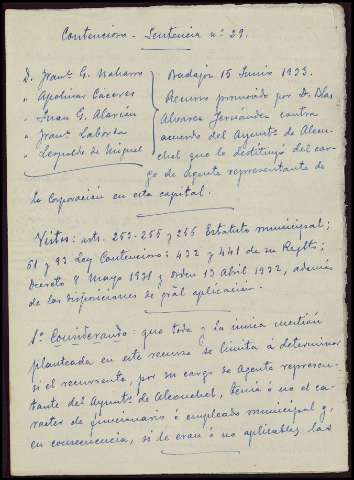 Contencioso - Sentencia n.º 29.
D. Franco. G. Naharro
" Apolinar Cáceres
" Juan G. Alarcón
" Franco. Laborda
" Leopoldo de Miguel
Badajoz 15 Junio 1933.
Recurso promovido por D. Blas
Alvarez Fernández contra
acuerdo del Ayunto. de Alcon-
chel que le destituyó del car-
go de Agente representante de
la Corporación en esta capital.
Vistos: arts. 253-255 y 256 Estatuto municipal;
61 y 93 Ley Contencioso: 432 y 441 de su Reglto;
Decreto 8 Mayo 1931 y Orden 13 Abril 1932, además
de las disposiciones de gral aplicación.
1º Considerando: que toda y la única cuestión
planteada en este recurso se limita á determinar
si el recurrente, por su cargo de Agente represen-
tante del Ayunto. de Alconchel, tenía ó no el ca-
racter de funcionario ó empleado municipal y,
en consecuencia, si le eran ó no aplicables las